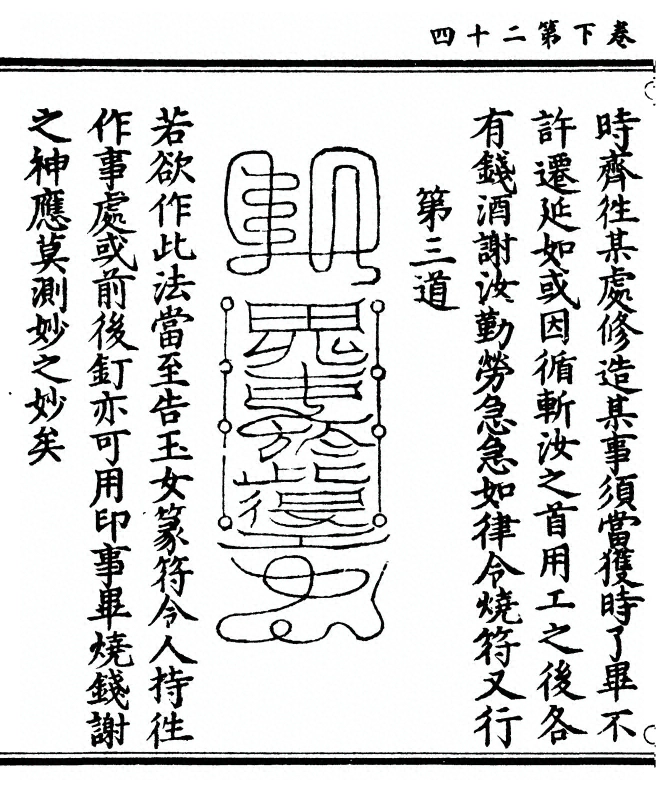 卷下第二十四
時齊徃某處修造某事須當獲時了畢不
許遷延如或因循斬汝之首用工之後各
有錢酒謝汝勤勞急急如律令燒符又行
第三道
若欲作此法當至告玉女篆符令人持徃
作事處或前後釘亦可用印事畢燒錢謝
之神應莫測妙之妙矣